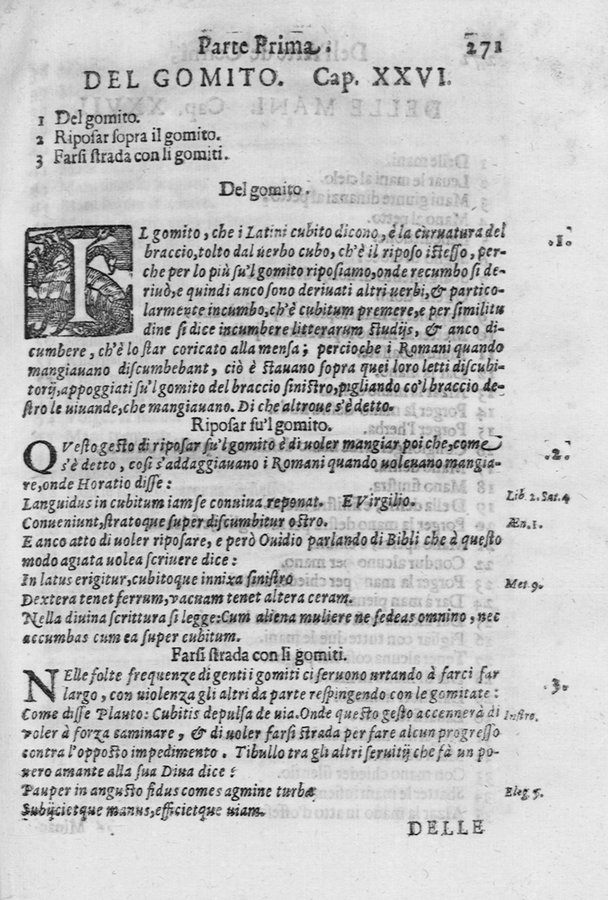 Parte Prima. 271
DEL GOMITO. Cap. XXVI.
1 Del gomito.
2 Riposar sopra il gomito.
3 Farsi strada con li gomiti.
Del gomito.
IL gomito, che i Latini cubito dicono, è la curuatura del .1.
braccio, tolto dal uerbo cubo, ch'è il riposo istesso, per-
che per lo più su'l gomito riposiamo, onde recumbo si de-
riuò, e quindi anco sono deriuati altri uerbi, & partico-
larmente incumbo, ch'è cubitum premere, e per similitu
dine si dice incumbere litterarum studijs, & anco di-
cumbere, ch'è lo star coricato alla mensa; percioche i Romani quando
mangiauano discumbebant, ciò è stauano sopra quei loro letti discubi-
torij, appoggiati su'l gomito del braccio sinistro, pigliando co'l braccio de-
stro le uiuande, che mangiauano. Di che altroue s'è detto.
Riposar su'l gomito.
QVesto gesto di riposar su'l gomito è di uoler mangiar poi che, come .2.
s'è detto, così s'addaggiauano i Romani quando uoleuano mangia-
re, onde Horatio disse:
Languidus in cubitum iam se conuiua reponat. E Virgilio. Lib. 2. Sat. 4
Conueniunt, stratoque super discumbitur ostro. Æn. 1.
E anco atto di uoler riposare, e però Ouidio parlando di Bibli che à questo
modo agiata uolea scriuere dice:
In latus erigitur, cubitoque innixa sinistro Met. 9.
Dextera tenet ferrum, uacuam tenet altera ceram.
Nella diuina scrittura si legge: Cum aliena muliere ne sedeas omnino, nec
accumbas cum ea super cubitum.
Farsi strada con li gomiti.
NElle folte frequenze di genti i gomiti ci seruono urtando à farci far .3.
largo, con uiolenza gli altri da parte respingendo con le gomitate:
Come disse Plauto: Cubitis depulsa de uia. Onde questo gesto accennerà di
uoler à forza caminare, & di uoler farsi strada per fare alcun progresso
contra l'opposto impedimento. Tibullo tra gli altri seruitij che fà un po-
uero amante alla sua Diua dice:
Pauper in angusto fidus comes agmine turbæ Eleg. 5.
Subijcietque manus, efficietque uiam.
DELLE